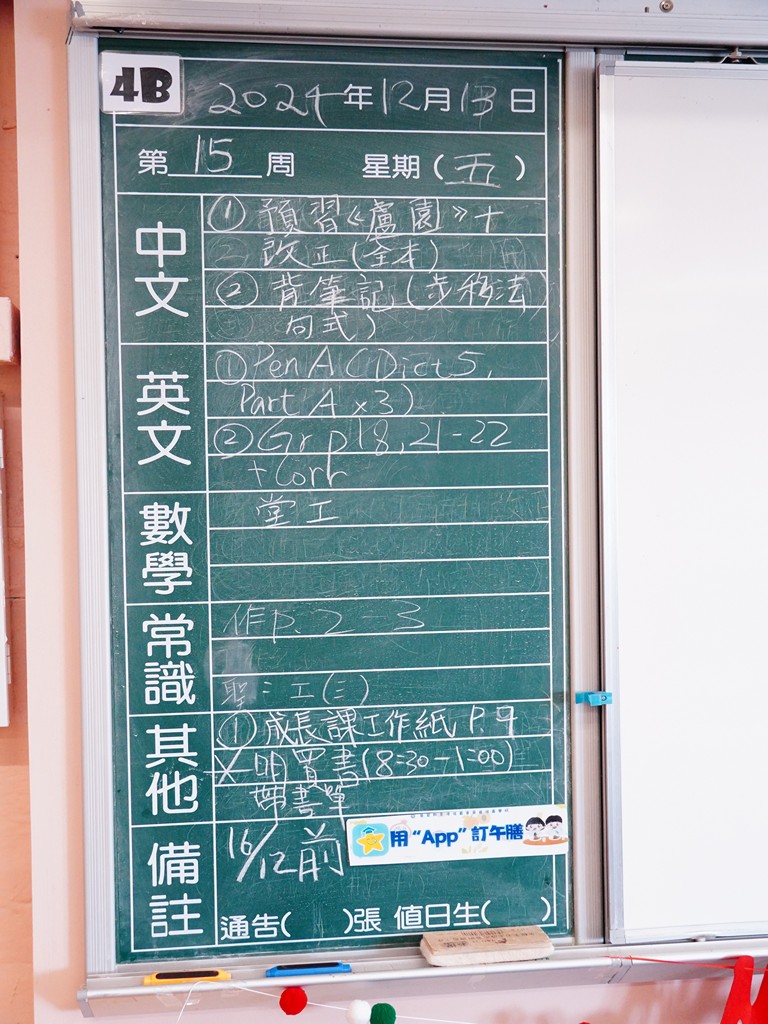 4B
2024年12月13日
第15周 星期(五)
中文
① 預習《盧園》+
改正(全本)
② 背筆記(步移法
句式)
英文
① Pen A (Dict 5,
Part A x3)
② Gr p18, 21-22
+Corr
數學
堂工
常識
作P. 2-3
聖三工(三)
其他
① 成長課工作紙 P.9
X 明買書(8:30-1:00)
帶書單
備註
16/12前
用“App”訂午膳
通告( )張 值日生( )